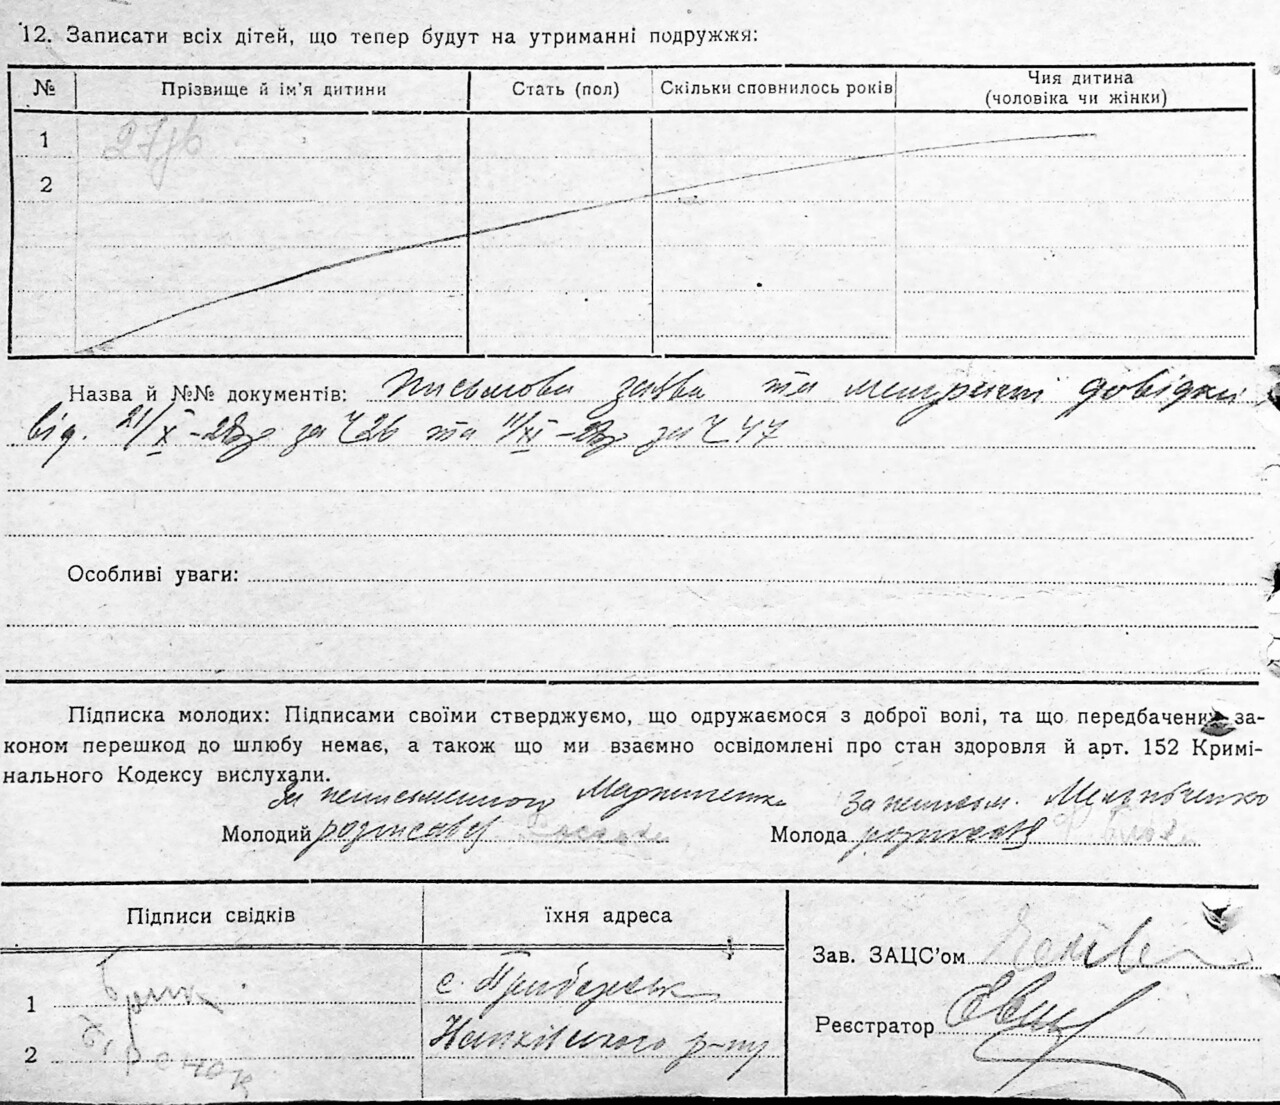 12. Записати всіх дітей, що тепер будут на утриманні подружжя:
№ Прізвище й ім’я дитини Стать (пол) Скільки сповнилось років Чия дитина
(чоловіка чи жінки)
1
2
Назва й №№ документів: Письмова заява та метричні довідки
від. 21/X – 28р за Ч 26 та 11/XI – 28р за Ч 47
Особливі уваги:
Підписка молодих: Підписами своїми стверджуємо, що одружаємося з доброї волі, та що передбачених за-
коном перешкод до шлюбу немає, а також що ми взаємно освідомлені про стан здоровля й арт. 152 Кримі-
нального Кодексу вислухали.
За неписьменного За неписьм.
Молодий розписався Молода
Підписи свідків їхня адреса
Зав. ЗАЦС’ом
1 с.
Реєстратор
2 р-ну